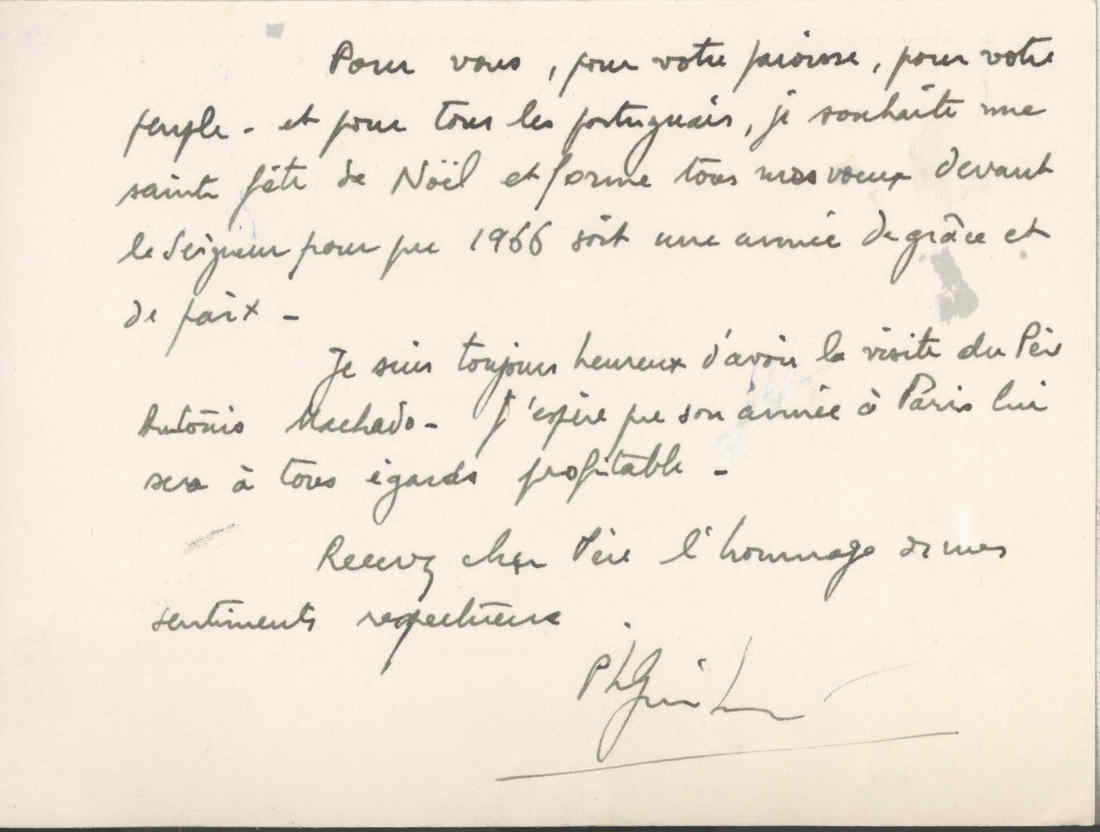 Pour vous, pour votre paroisse, pour votre
peuple - et pour tous les portuguais, je souhaite une
sainte fête de Noël et forme tous mes voeux devant
le Seigneur pour que 1966 soit une année de grâce et
de paix -
Je suis toujours heureux d'avoir la visite du Père
António Machado - J'espère que son année à Paris lui
sera à tous égards profitable -
Recevez cher Père l'hommage de mes
sentiments respectueux.